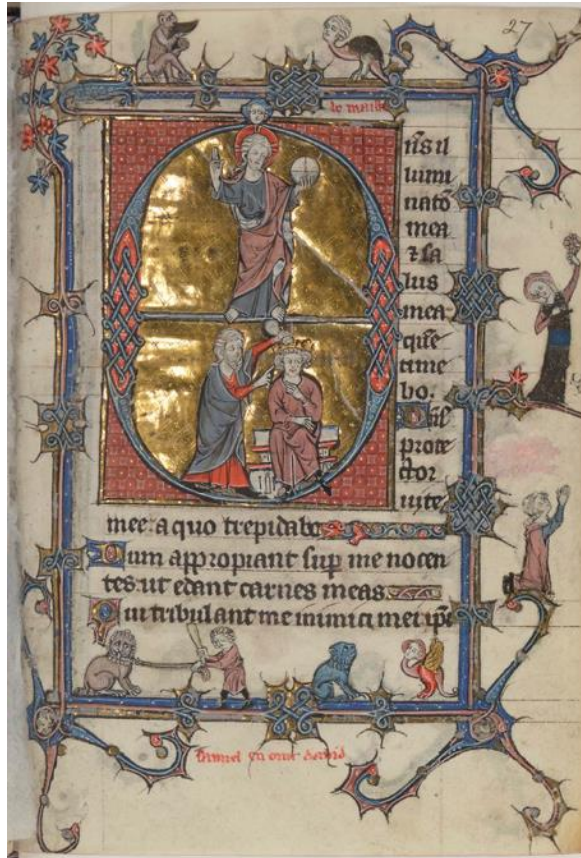 27
Dn̄s il
lumi
natō
mea
⁊ sa
lus
mea
quē
time
bo.
Dn̄s
prote
ctor
uite
mee: a quo trepidabo
Dum appropiant sup̄ me nocen
tes: ut edant carnes meas
Qui tribulant me inimici mei ip̄i
samuel en oint dauid